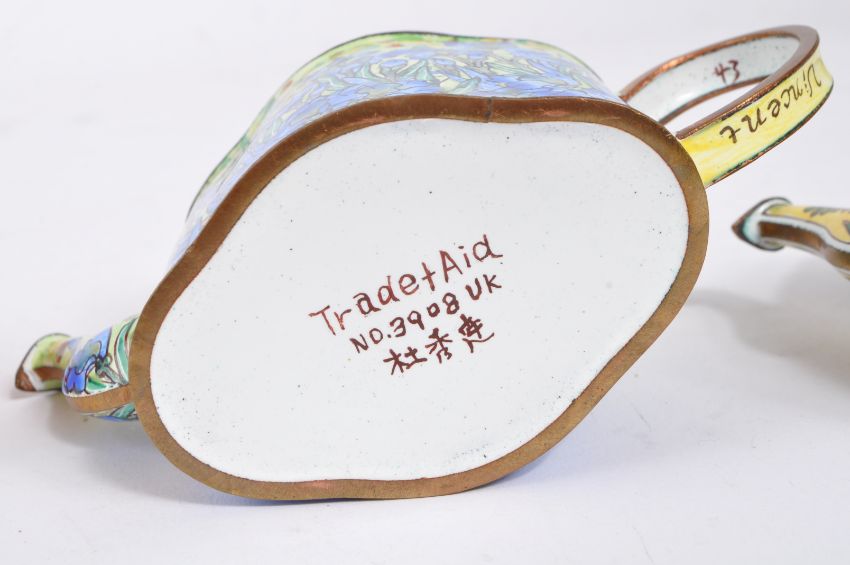 Trade+Aid
NO.3908 UK
杜秀连
43
Vincent